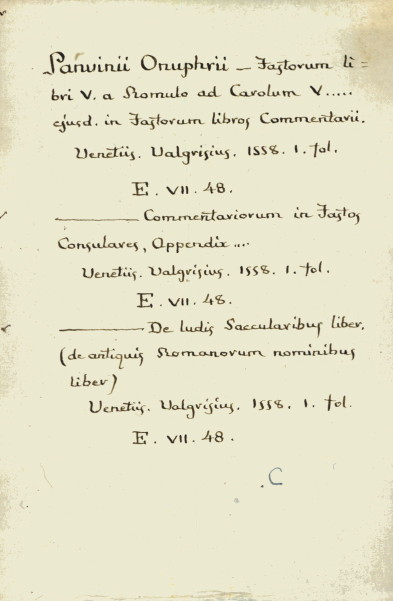 Panvinii Onuphrii — Fastorum li=
bri V. a Romulo ad Carolum V.....
ejusd. in Fastorum libros Commentarii.
Venetiis. Valgrisius. 1558. 1. fol.
E. VII. 48.
———— Commentariorum in Fastos
Consulares, Appendix....
Venetiis. Valgrisius. 1558. 1. fol.
E. VII. 48.
———— De ludis Saecularibus liber.
(de antiquis Romanorum nominibus
liber)
Venetiis. Valgrisius. 1558. 1. fol.
E. VII. 48.
.C